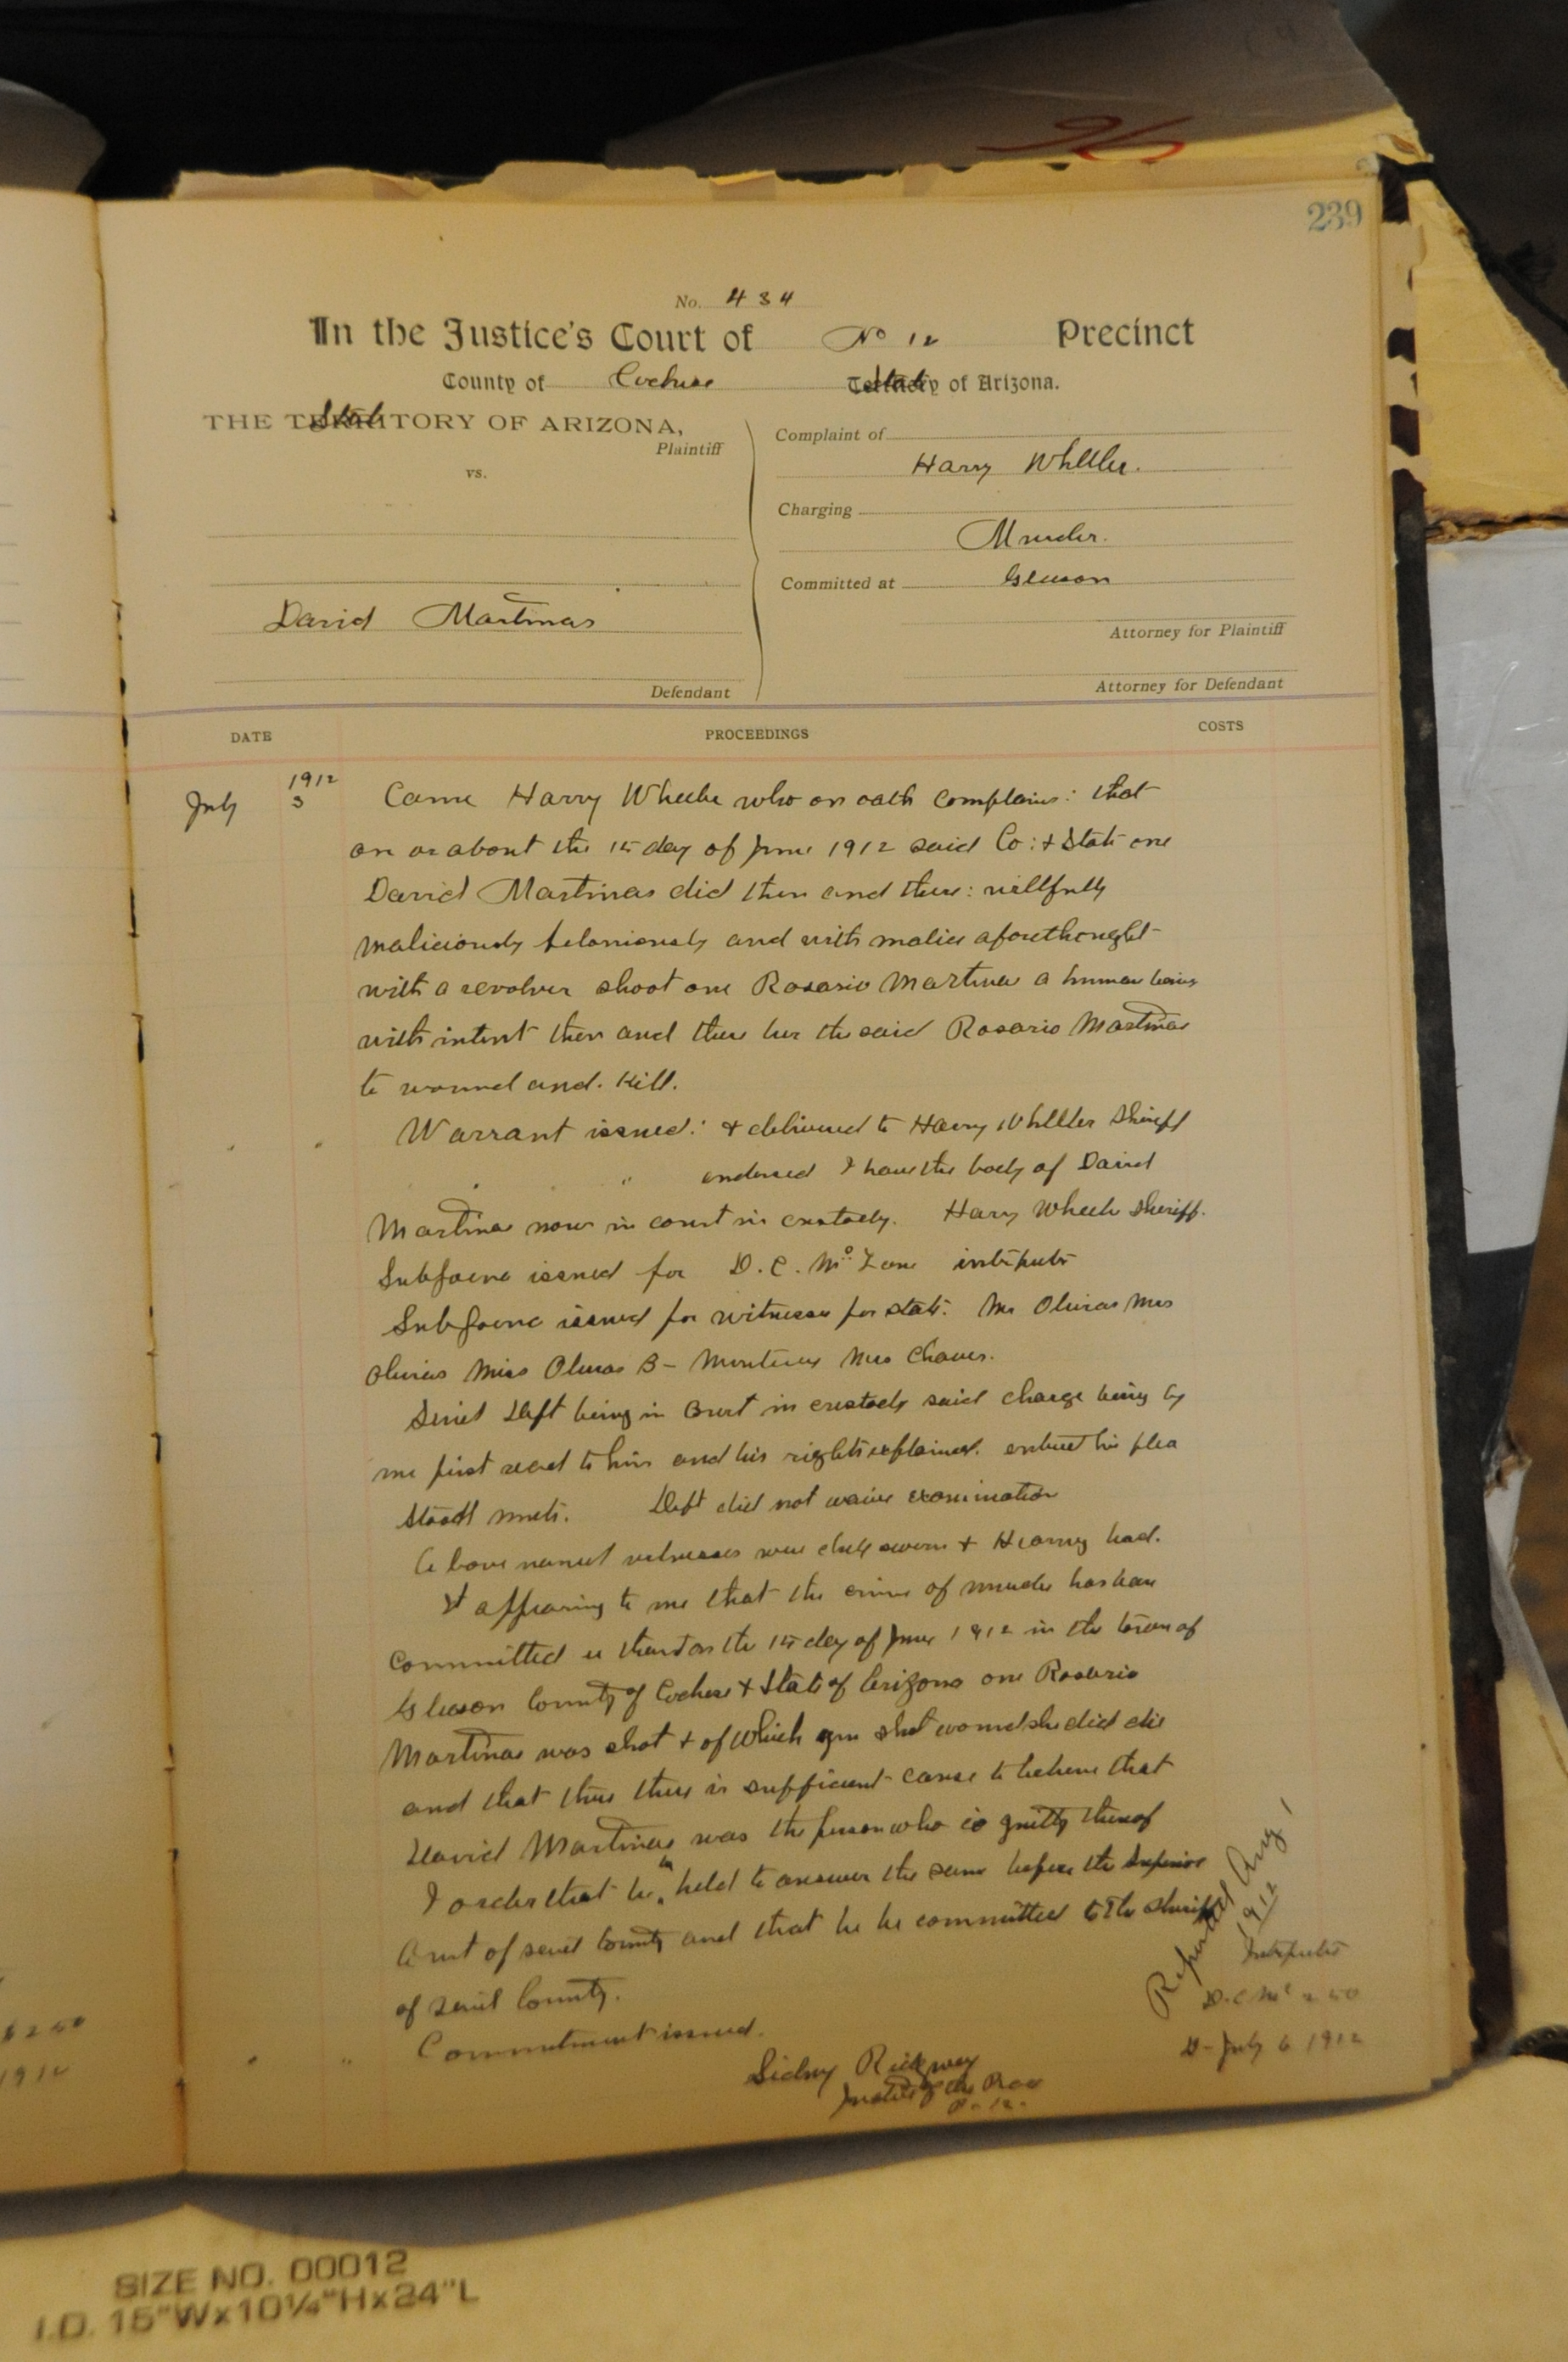 96
239
No. 434
In the Justice's Court of No 12 Precinct
County of Cochise State of Arizona.
THE State OF ARIZONA,
Plaintiff
vs.
David Martinas
Defendant
Complaint of
Harry Wheeler.
Charging
Murder.
Committed at Gleeson
Attorney for Plaintiff
Attorney for Defendant
DATE PROCEEDINGS COSTS
1912
July 3 Came Harry Wheeler who on oath complains: that
on or about the 15 day of June 1912 said Co: & State one
David Martinas did then and there: willfully
maliciously feloniously and with malice aforethought
with a revolver shoot one Rosario Martinas a human being
with intent then and there her the said Rosario Martinas
to wound and. Kill.
Warrant issued: & delivered to Harry Wheeler Sheriff
" endorsed I have the body of David
Martinas now in court in custody. Harry Wheeler Sheriff.
Subpoena issued for D. C. interpreter
Subpoena issued for witnesses for state. Mr Olivas Mrs
Olivas Miss Olivas B- Mrs Chaves.
Said Deft being in Court in custody said charge being by
me first read to him and his rights explained. entered his plea
stood mute. Deft did not waive examination
Above named witnesses were duly sworn & Hearing had.
It appearing to me that the crime of murder has been
committed on the 15 day of June 1912 in the town of
Gleeson County of Cochise & State of Arizona one Rosario
Martinas was shot & of which gun shot wound she did die
and that there is sufficient cause to believe that
David Martinas was the person who is guilty thereof
I order that he be held to answer the same before the Superior
Court of said County and that he be committed to the Sheriff
of said County.
Commitment issued.
Sidney Rickway
Justice of the Peace
P. 12.
Reported Aug 1
1912
Interpreter
D. C. Mc 2 50
D- July 6 1912
$2 50
1912
SIZE NO. 00012
I.D. 15"Wx10¼"Hx24"L